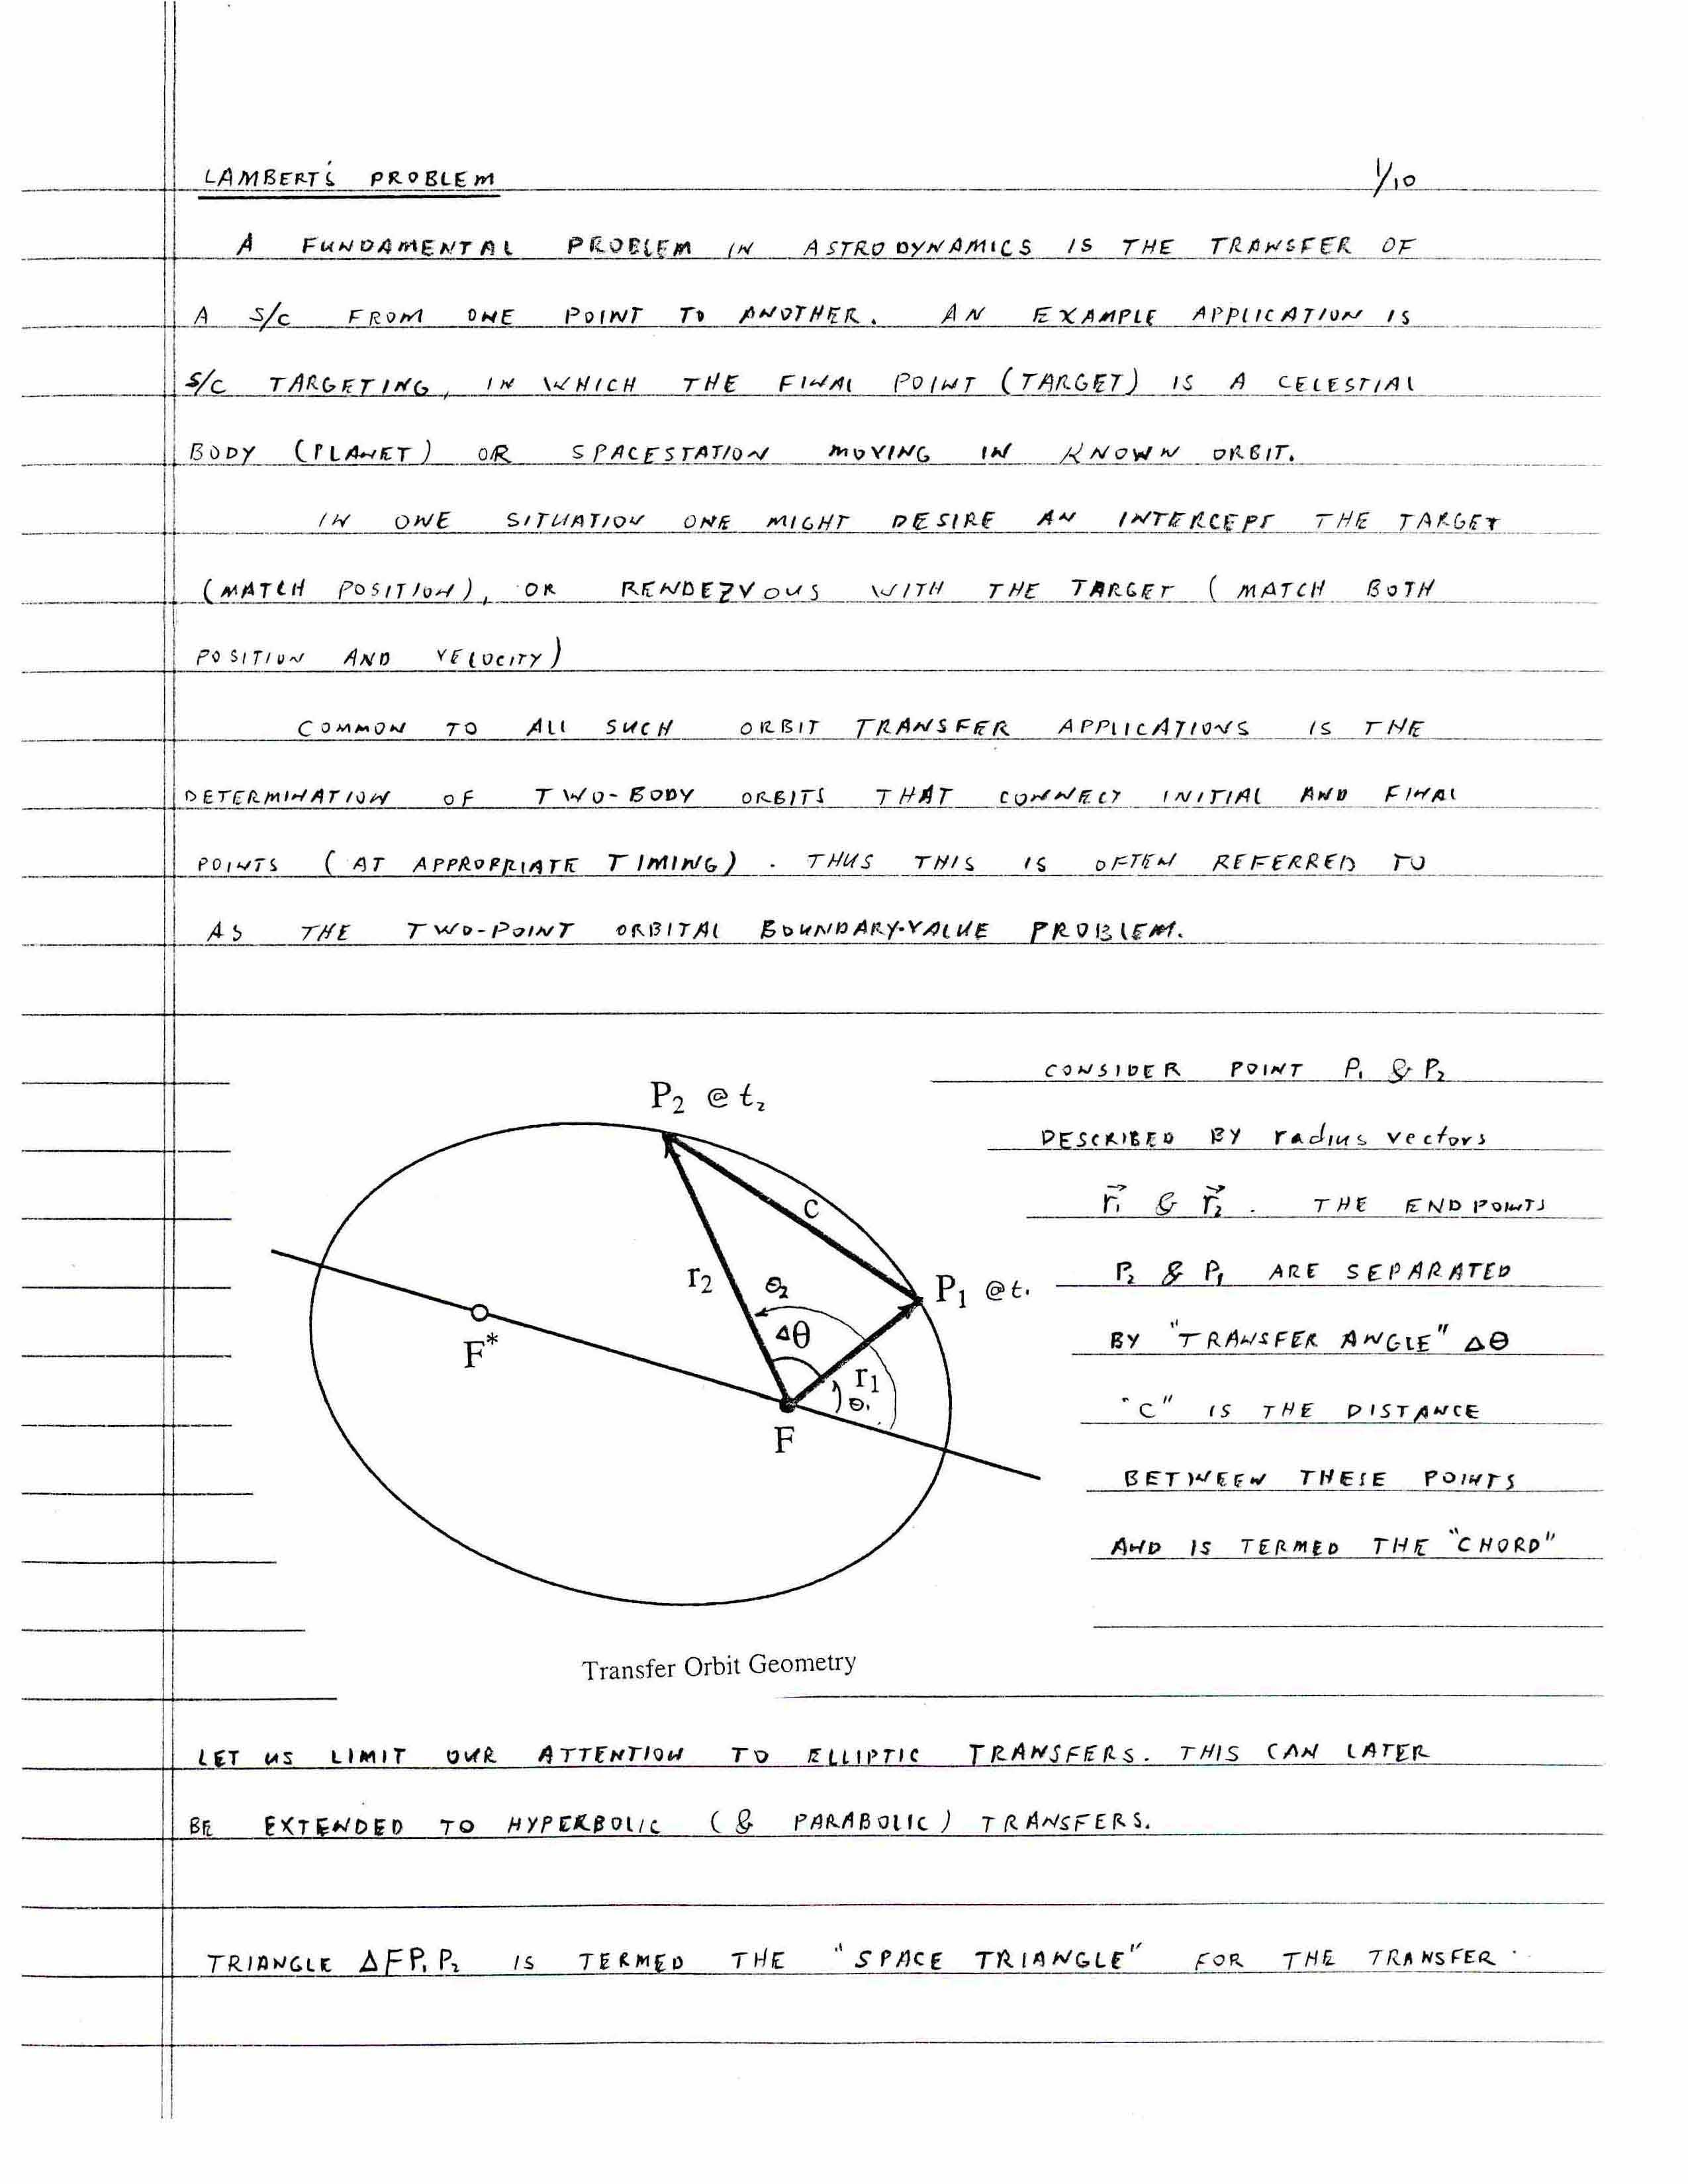 LAMBERT'S PROBLEM 1/10
A FUNDAMENTAL PROBLEM IN ASTRODYNAMICS IS THE TRANSFER OF
A S/C FROM ONE POINT TO ANOTHER. AN EXAMPLE APPLICATION IS
S/C TARGETING, IN WHICH THE FINAL POINT (TARGET) IS A CELESTIAL
BODY (PLANET) OR SPACESTATION MOVING IN KNOWN ORBIT.
IN ONE SITUATION ONE MIGHT DESIRE AN INTERCEPT THE TARGET
(MATCH POSITION), OR RENDEZVOUS WITH THE TARGET (MATCH BOTH
POSITION AND VELOCITY)
COMMON TO ALL SUCH ORBIT TRANSFER APPLICATIONS IS THE
DETERMINATION OF TWO-BODY ORBITS THAT CONNECT INITIAL AND FINAL
POINTS (AT APPROPRIATE TIMING). THUS THIS IS OFTEN REFERRED TO
AS THE TWO-POINT ORBITAL BOUNDARY-VALUE PROBLEM.
CONSIDER POINT P₁ & P₂
DESCRIBED BY radius vectors
r⃗₁ & r⃗₂. THE ENDPOINTS
P₂ & P₁ ARE SEPARATED
BY "TRANSFER ANGLE" Δθ
"C" IS THE DISTANCE
BETWEEN THESE POINTS
AND IS TERMED THE "CHORD"
P₂ @ t₂
c
r₂
θ₂
P₁ @ t₁
Δθ
F*
r₁
θ₁
F
Transfer Orbit Geometry
LET US LIMIT OUR ATTENTION TO ELLIPTIC TRANSFERS. THIS CAN LATER
BE EXTENDED TO HYPERBOLIC (& PARABOLIC) TRANSFERS.
TRIANGLE ΔFP₁P₂ IS TERMED THE "SPACE TRIANGLE" FOR THE TRANSFER.